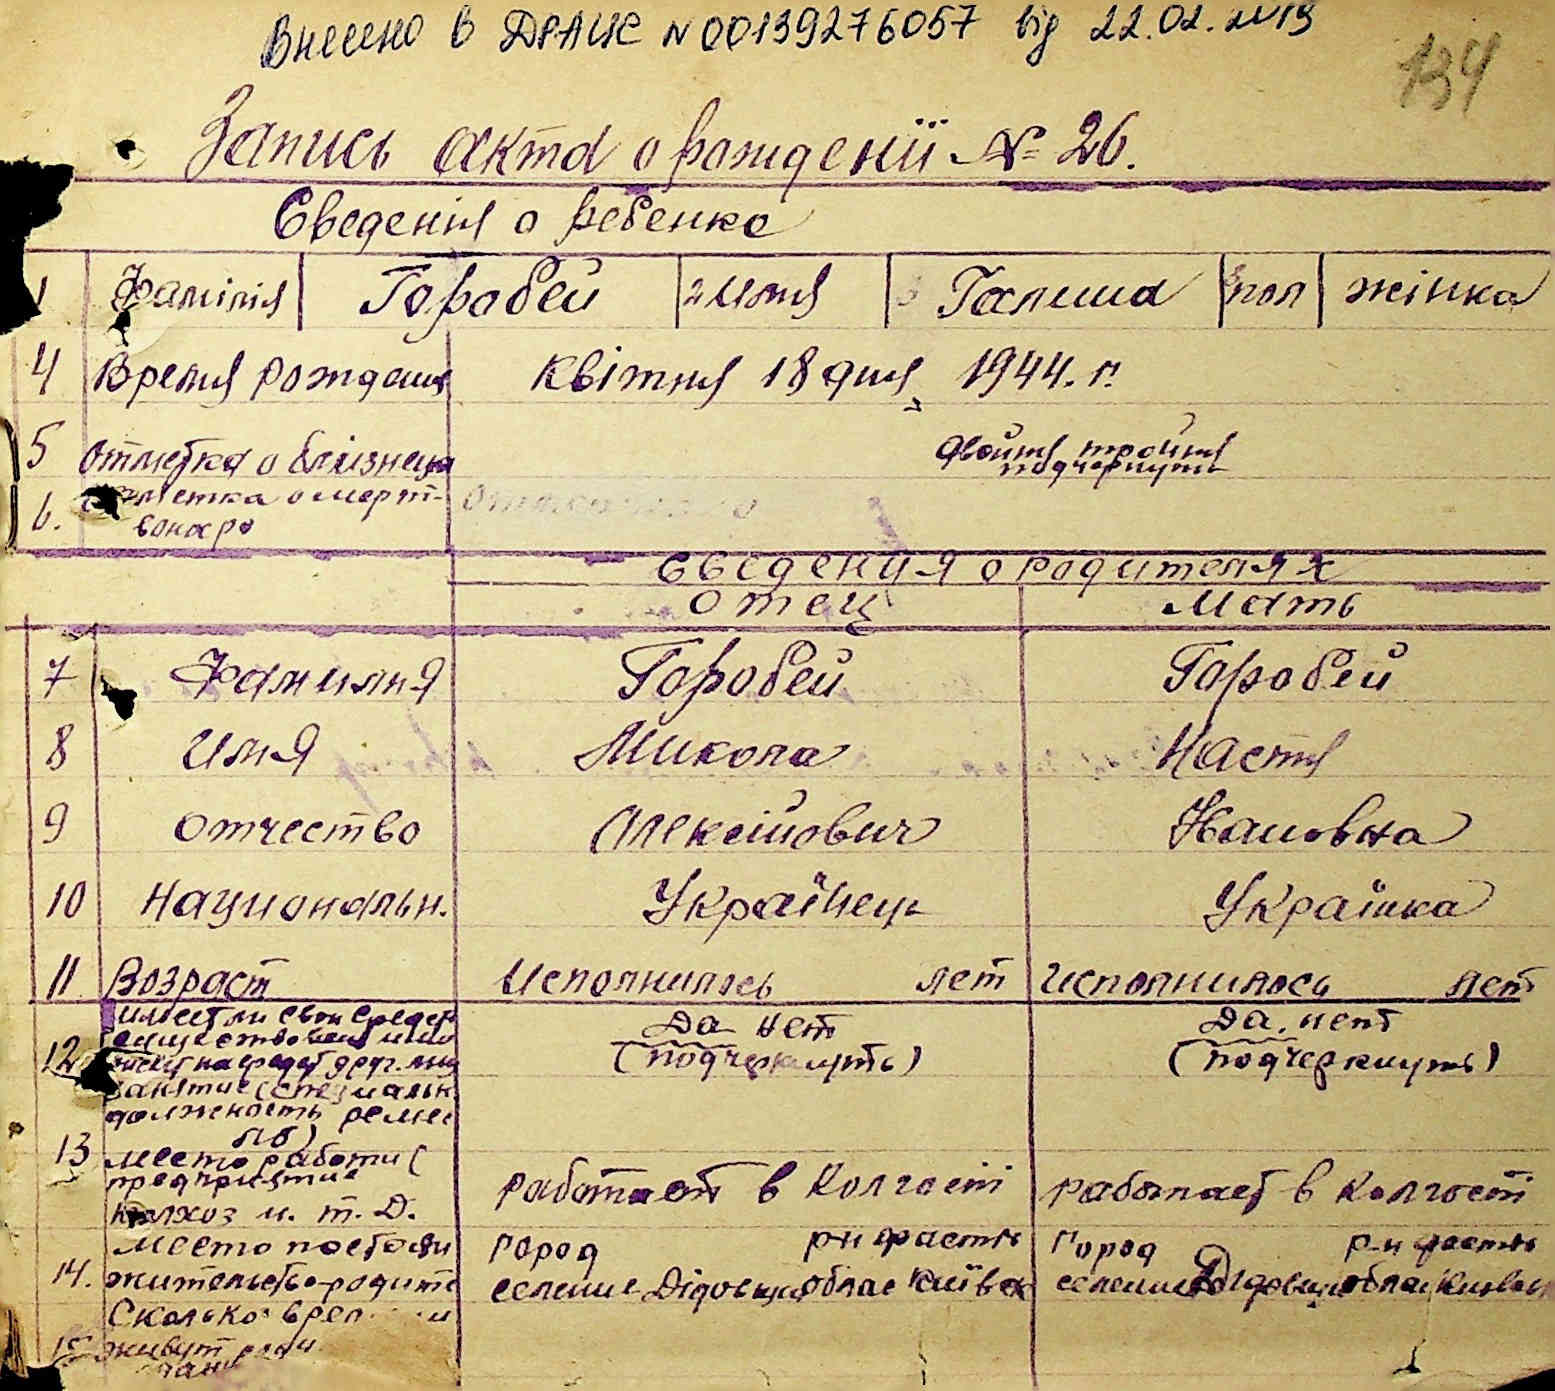 Внесено в ДРАЦС №00139276057 від 22.02.2019
134
Запись акта о рожденії № 26.
Сведенія о ребенке
1 Фамілія Горобей 2 Имя Галина 3 пол жінка
4 Время рождения Квітня 18 дня 1944. г.
5 отметка о близнеца двойня тройня
подчеркнуть
6. отметка о мерт-
вонаро
Сведения о родителях
отец Мать
7 Фамилия Горобей Горобей
8 Имя Микола Настя
9 отчество Олексійович Ивановна
10 Национальн. Українець Українка
11 Возраст Исполнилось лет Исполнилось лет
12 имеет ли свои средст Да нет Да, нет
(подчеркнуть) (подчеркнуть)
занятие (специальн
должность ремес
ло)
13 место работи (
предприятие
Колхоз и. т. Д. работает в Колгоспі работает в Колгоспі
место постоян город р-н фастів город р-н фастів
14. жительство родите селение Дідовщи облас Київск селение Дідовщи облас
Сколько врем
15 живут